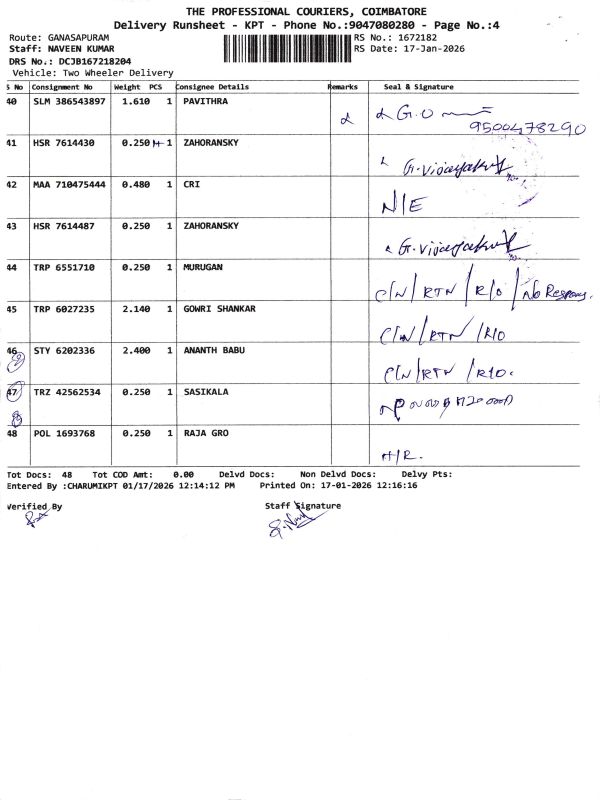 THE PROFESSIONAL COURIERS, COIMBATORE
Delivery Runsheet - KPT - Phone No.:9047080280 - Page No.:4
Route: GANASAPURAM RS No.: 1672182
Staff: NAVEEN KUMAR RS Date: 17-Jan-2026
DRS No.: DCJB167218204
Vehicle: Two Wheeler Delivery
S No Consignment No Weight PCS Consignee Details Remarks Seal & Signature
40 SLM 386543897 1.610 1 PAVITHRA G.O
9500478290
41 HSR 7614430 0.250 1 ZAHORANSKY G.Vijayakum
42 MAA 710475444 0.480 1 CRI N/E
43 HSR 7614487 0.250 1 ZAHORANSKY G.Vijayakum
44 TRP 6551710 0.250 1 MURUGAN C/N/RTN/R/O/No Respons.
45 TRP 6027235 2.140 1 GOWRI SHANKAR C/N/RTN/R/O
46 STY 6202336 2.400 1 ANANTH BABU C/N/RTN/R/O.
47 TRZ 42562534 0.250 1 SASIKALA
48 POL 1693768 0.250 1 RAJA GRO H/R.
Tot Docs: 48 Tot COD Amt: 0.00 Delvd Docs: Non Delvd Docs: Delvy Pts:
Entered By :CHARUMIKPT 01/17/2026 12:14:12 PM Printed On: 17-01-2026 12:16:16
Verified By Staff Signature